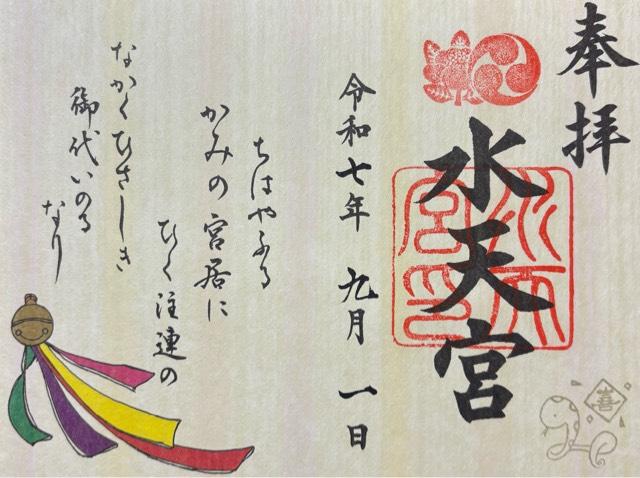 奉拝
水天宮
水天
宮印
喜
令和七年 九月 一日
ちはやふる
かみの宮居に
ひく注連の
なかくひさしき
御代いのる
なり